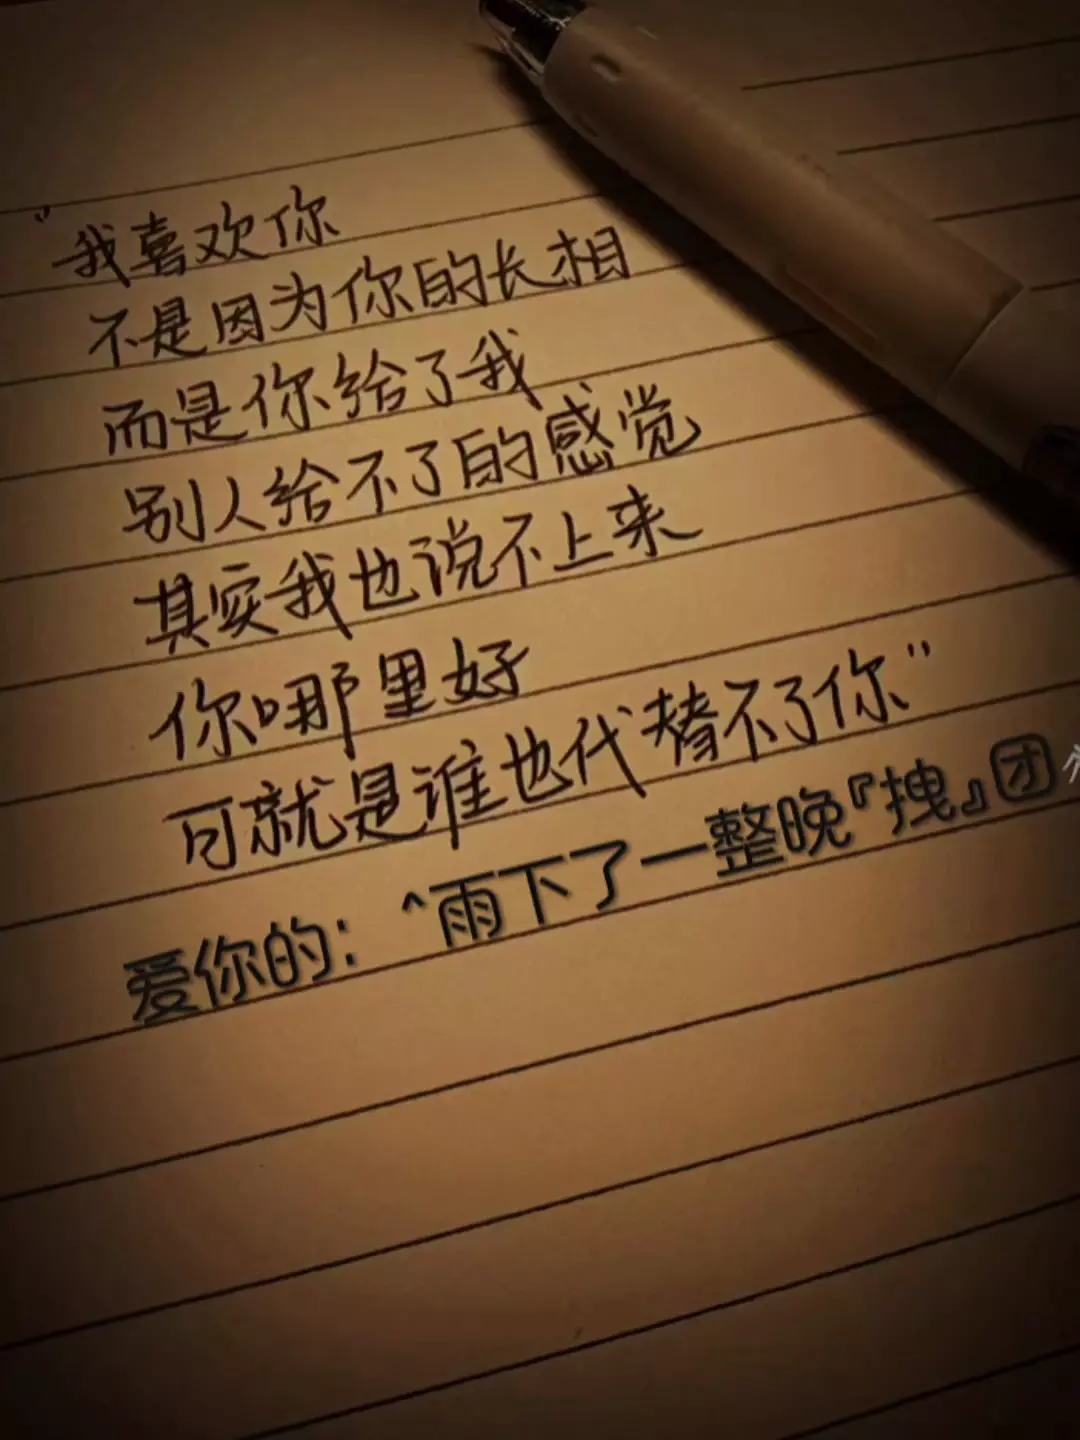 “我喜欢你
不是因为你的长相
而是你给了我
别人给不了的感觉
其实我也说不上来
你哪里好
可就是谁也代替不了你”
爱你的：^雨下了一整晚『拽』团